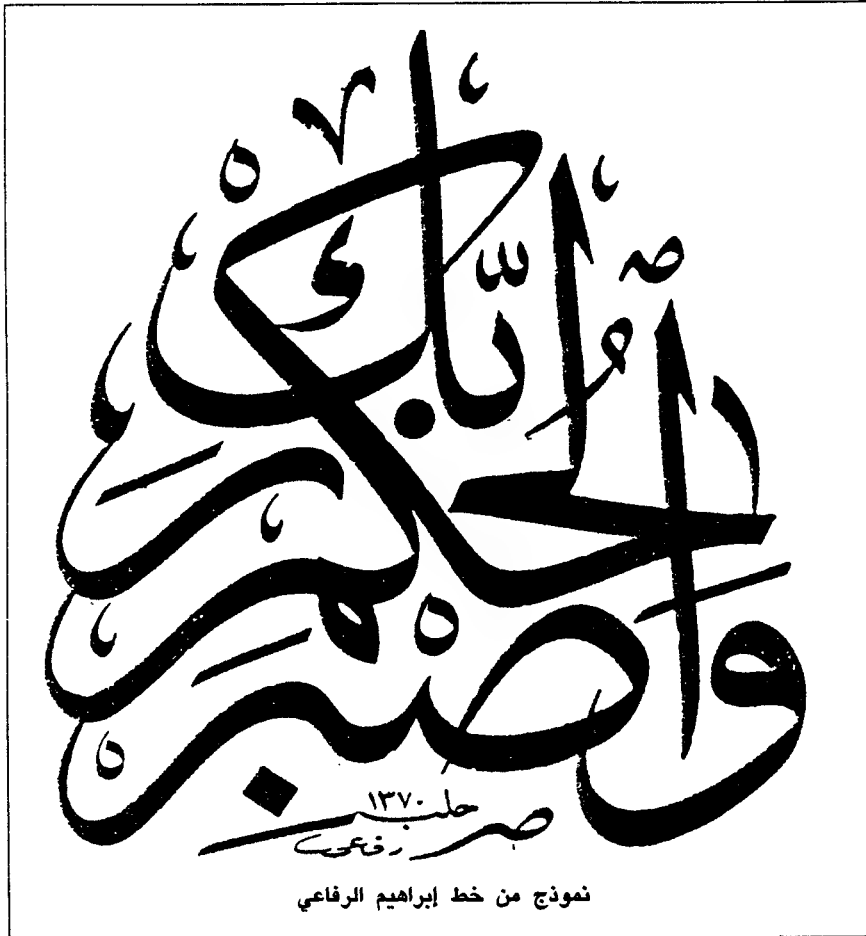 وَاصْبِرْ لِحُكْمِ رَبِّكَ
حلب ١٣٧٠
رفاعي
نموذج من خط إبراهيم الرفاعي